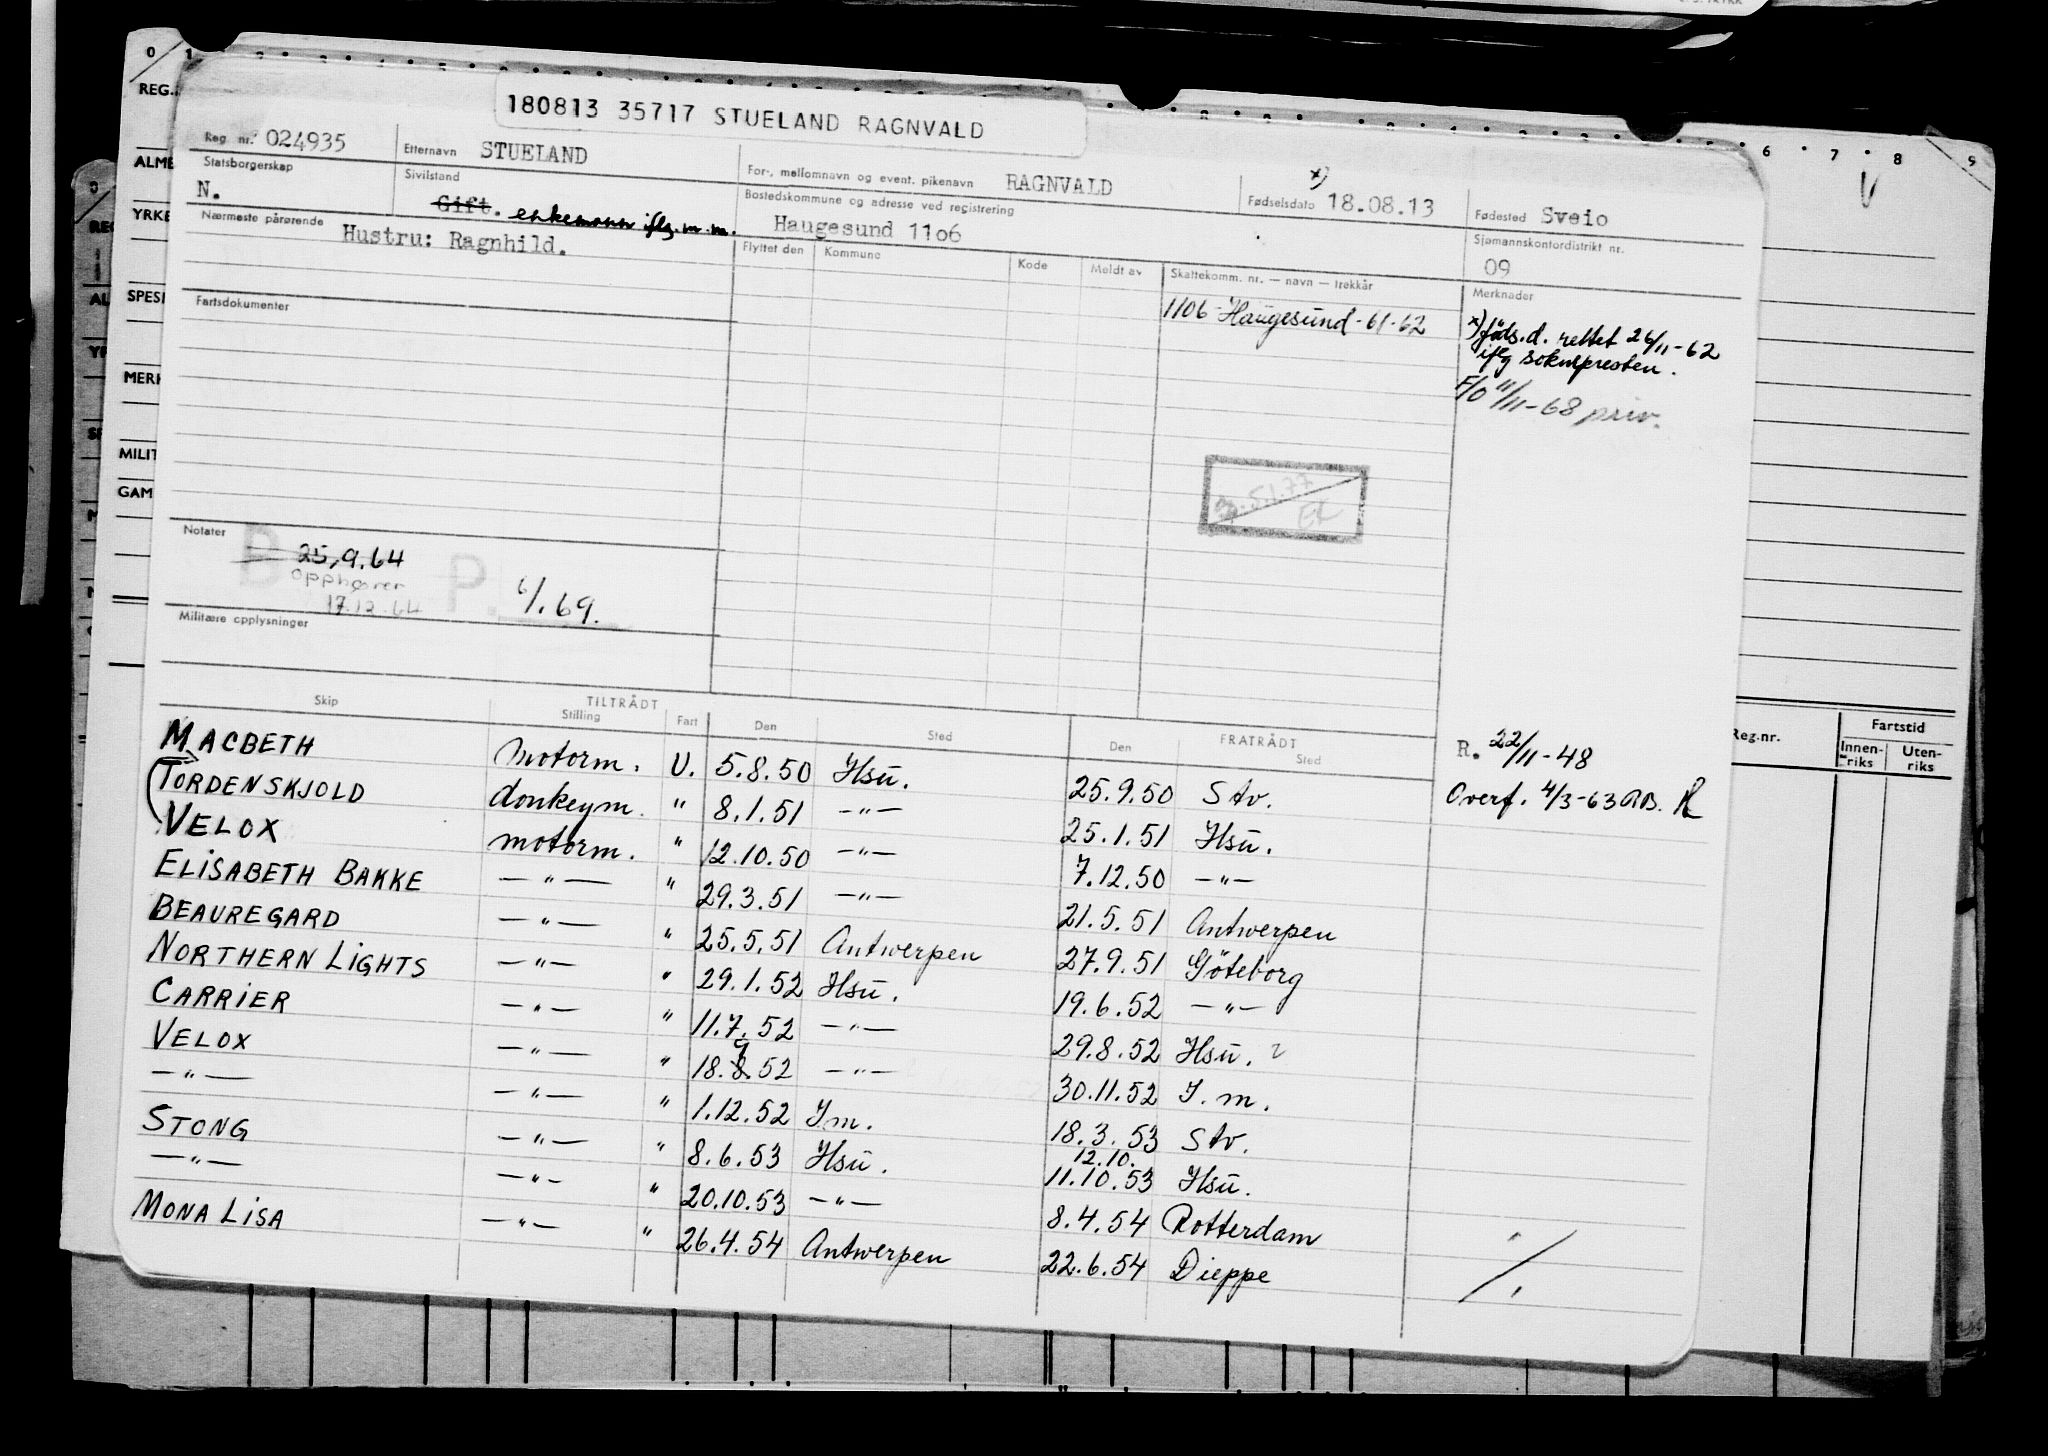 180813 35717 STUELAND RAGNVALD
Reg. nr. 024935 Etternavn STUELAND For-, mellomnavn og event. pikenavn RAGNVALD Fødselsdato x) 18.08.13 Fødested Sveio
Statsborgerskap N. Sivilstand Gift. enkemann iflg. m.m. Bostedskommune og adresse ved registrering Haugesund 1106 Sjømannskontordistrikt nr. 09
Nærmeste pårørende Hustru: Ragnhild. Flyttet den Kommune Kode Meldt av Skattekomm. nr. — navn — trekkår Merknader
1106 Haugesund - 61-62
x) føds.d. rettet 26/11-62
iflg soknepresten.
F/O 11/11-68 priv.
Fartsdokumenter
5.1.77
Notater
D P.
25.9.64
opphører
17.12.64
6/1.69.
Militære opplysninger
Skip TILTRÅDT FRATRÅDT
Stilling Fart Den Sted Den Sted
R. 22/11-48
Overf. 4/3-63
MACBETH motorm. U. 5.8.50 Hsu. 25.9.50 Stv.
TORDENSKJOLD donkeym. " 8.1.51 —"— 25.1.51 Hsu.
VELOX motorm. " 12.10.50 —"— 7.12.50 —"—
ELISABETH BAKKE —"— " 29.3.51 —"— 21.5.51 Antwerpen
BEAUREGARD —"— " 25.5.51 Antwerpen 27.9.51 Göteborg
NORTHERN LIGHTS —"— " 29.1.52 Hsu. 19.6.52 —"—
CARRIER —"— " 11.7.52 —"— 29.8.52 Hsu. ?
VELOX —"— " 18.9.52 —"— 30.11.52 I.m.
—"— —"— " 1.12.52 I.m. 18.3.53 Stv.
12.10.
STONG —"— " 8.6.53 Hsu. 11.10.53 Hsu.
—"— —"— " 20.10.53 —"— 8.4.54 Rotterdam
MONA LISA —"— " 26.4.54 Antwerpen 22.6.54 Dieppe
REG.
ALME
YRKE
SPESI
MERK
MILIT
GAM
6 7 8 9
Reg.nr. Fartstid
Innen-riks Uten-riks